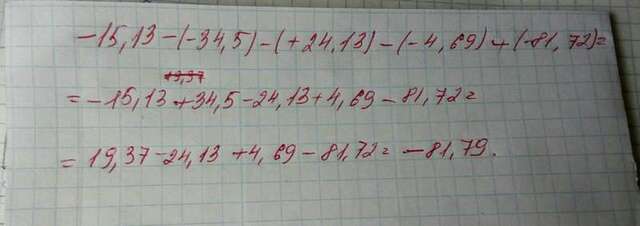 -15,13-(-34,5)-(+24,13)-(-4,69)+(-81,72)=
19,37
=-15,13+34,5-24,13+4,69-81,72=
=19,37-24,13+4,69-81,72=-81,79.